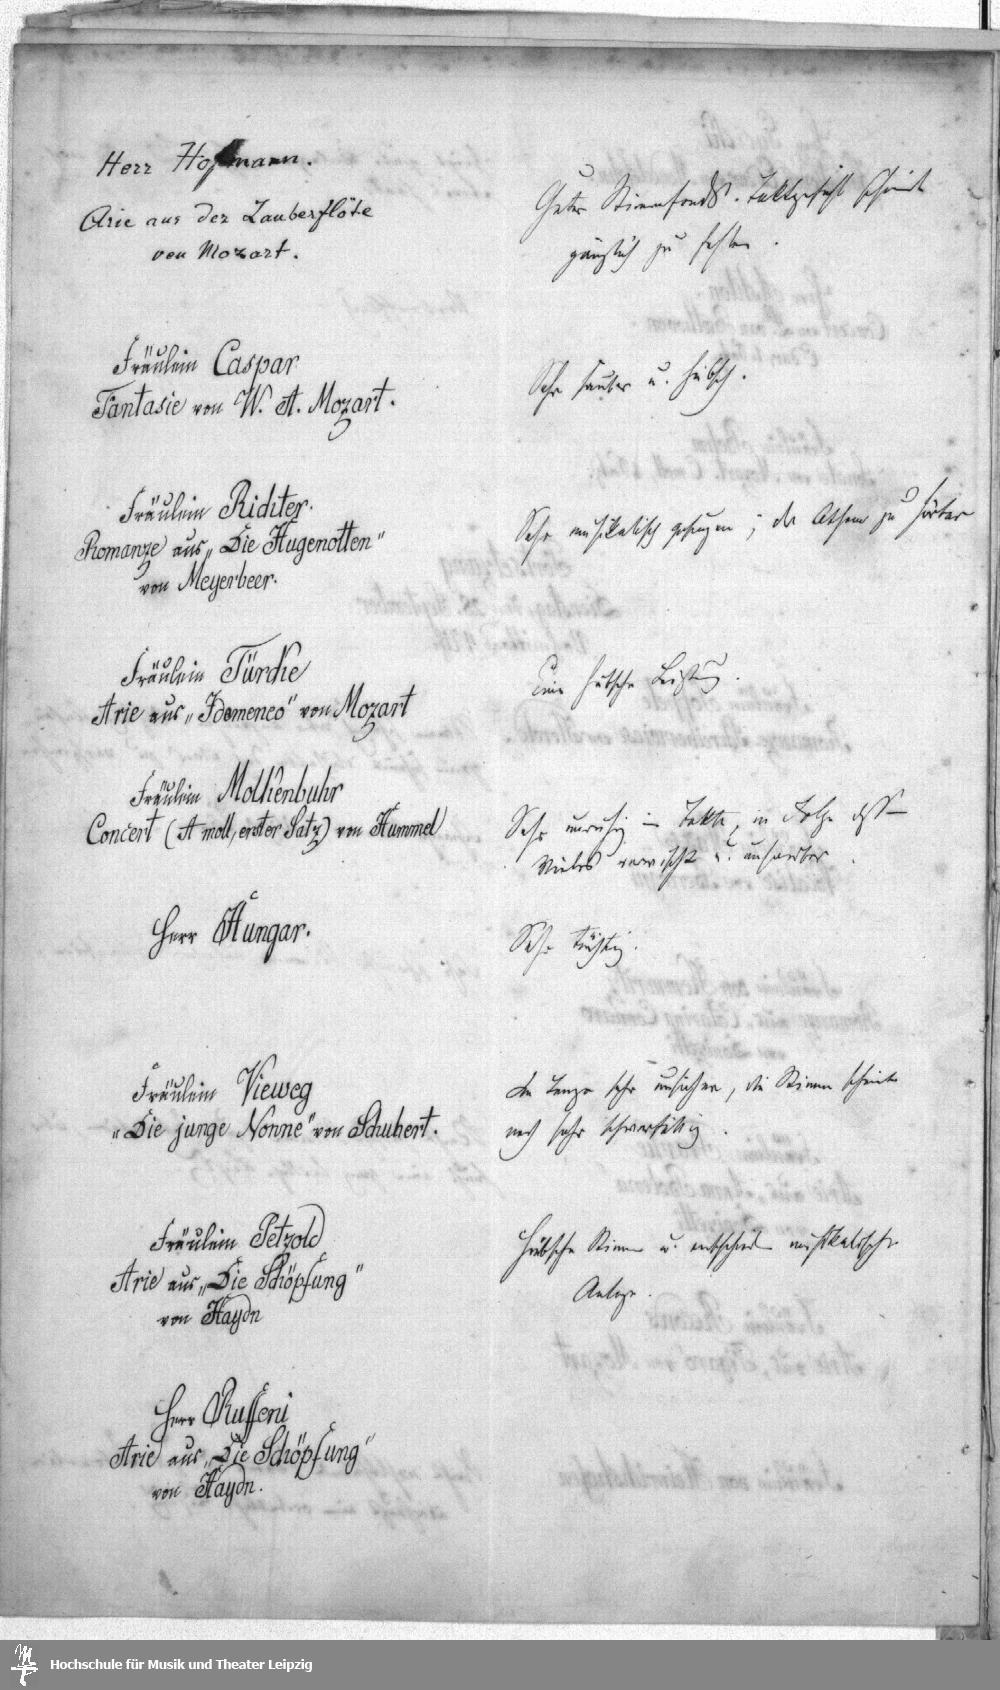 Herr Hofmann.
Arie aus der Zauberflöte
von Mozart.
Guter Stimmfonds. Taktgefühl scheint
gänzlich zu fehlen.
Fräulein Caspar
Fantasie von W. A. Mozart.
Sehr sauber u. hübsch.
Fräulein Richter.
Romanze aus „Die Hugenotten"
von Meyerbeer.
Sehr musikalisch gesungen; der Athem zu hörbar
Fräulein Türcke
Arie aus „Idomeneo" von Mozart
Eine hübsche Leistung.
Fräulein Molkenbuhr
Concert (A moll, erster Satz) von Hummel
Sehr unruhig im Takte, in Folge dessen
Vieles verwischt u. unsauber.
Herr Hungar.
Sehr tüchtig.
Fräulein Vieweg
„Die junge Nonne" von Schubert.
Im Tempo sehr unsicher, die Stimme scheint
noch sehr schwerfällig.
Fräulein Petzold
Arie aus „Die Schöpfung"
von Haydn
Hübsche Stimme u. entschieden musikalische
Anlage.
Herr Ruffeni
Arie aus „Die Schöpfung"
von Haydn.
Hochschule für Musik und Theater Leipzig